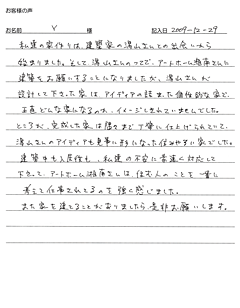 お客様の声
お名前 Y 様 記入日 2009-12-29
私達の家作りは、建築家の湯山さんとの出会いから
始まりました。そして湯山さんのつてで、アートホーム湘南さんに
建築をお願いすることになりましたが、湯山さんが
設計して下さった家は、アイディアの詰まった個性的な家で、
正直どんな家になるのか、イメージしきれていませんでした。
ところが、完成した家は隅々まで丁寧に仕上げられていて、
湯山さんのアイディアも見事に形になった住みやすい家でした。
建築中も入居後も、私達の不安に素速く対応して
下さって、アートホーム湘南さんは、住む人のことを一番に
考えて仕事されてるのを強く感じました。
また家を建てることがありましたら是非お願いします。